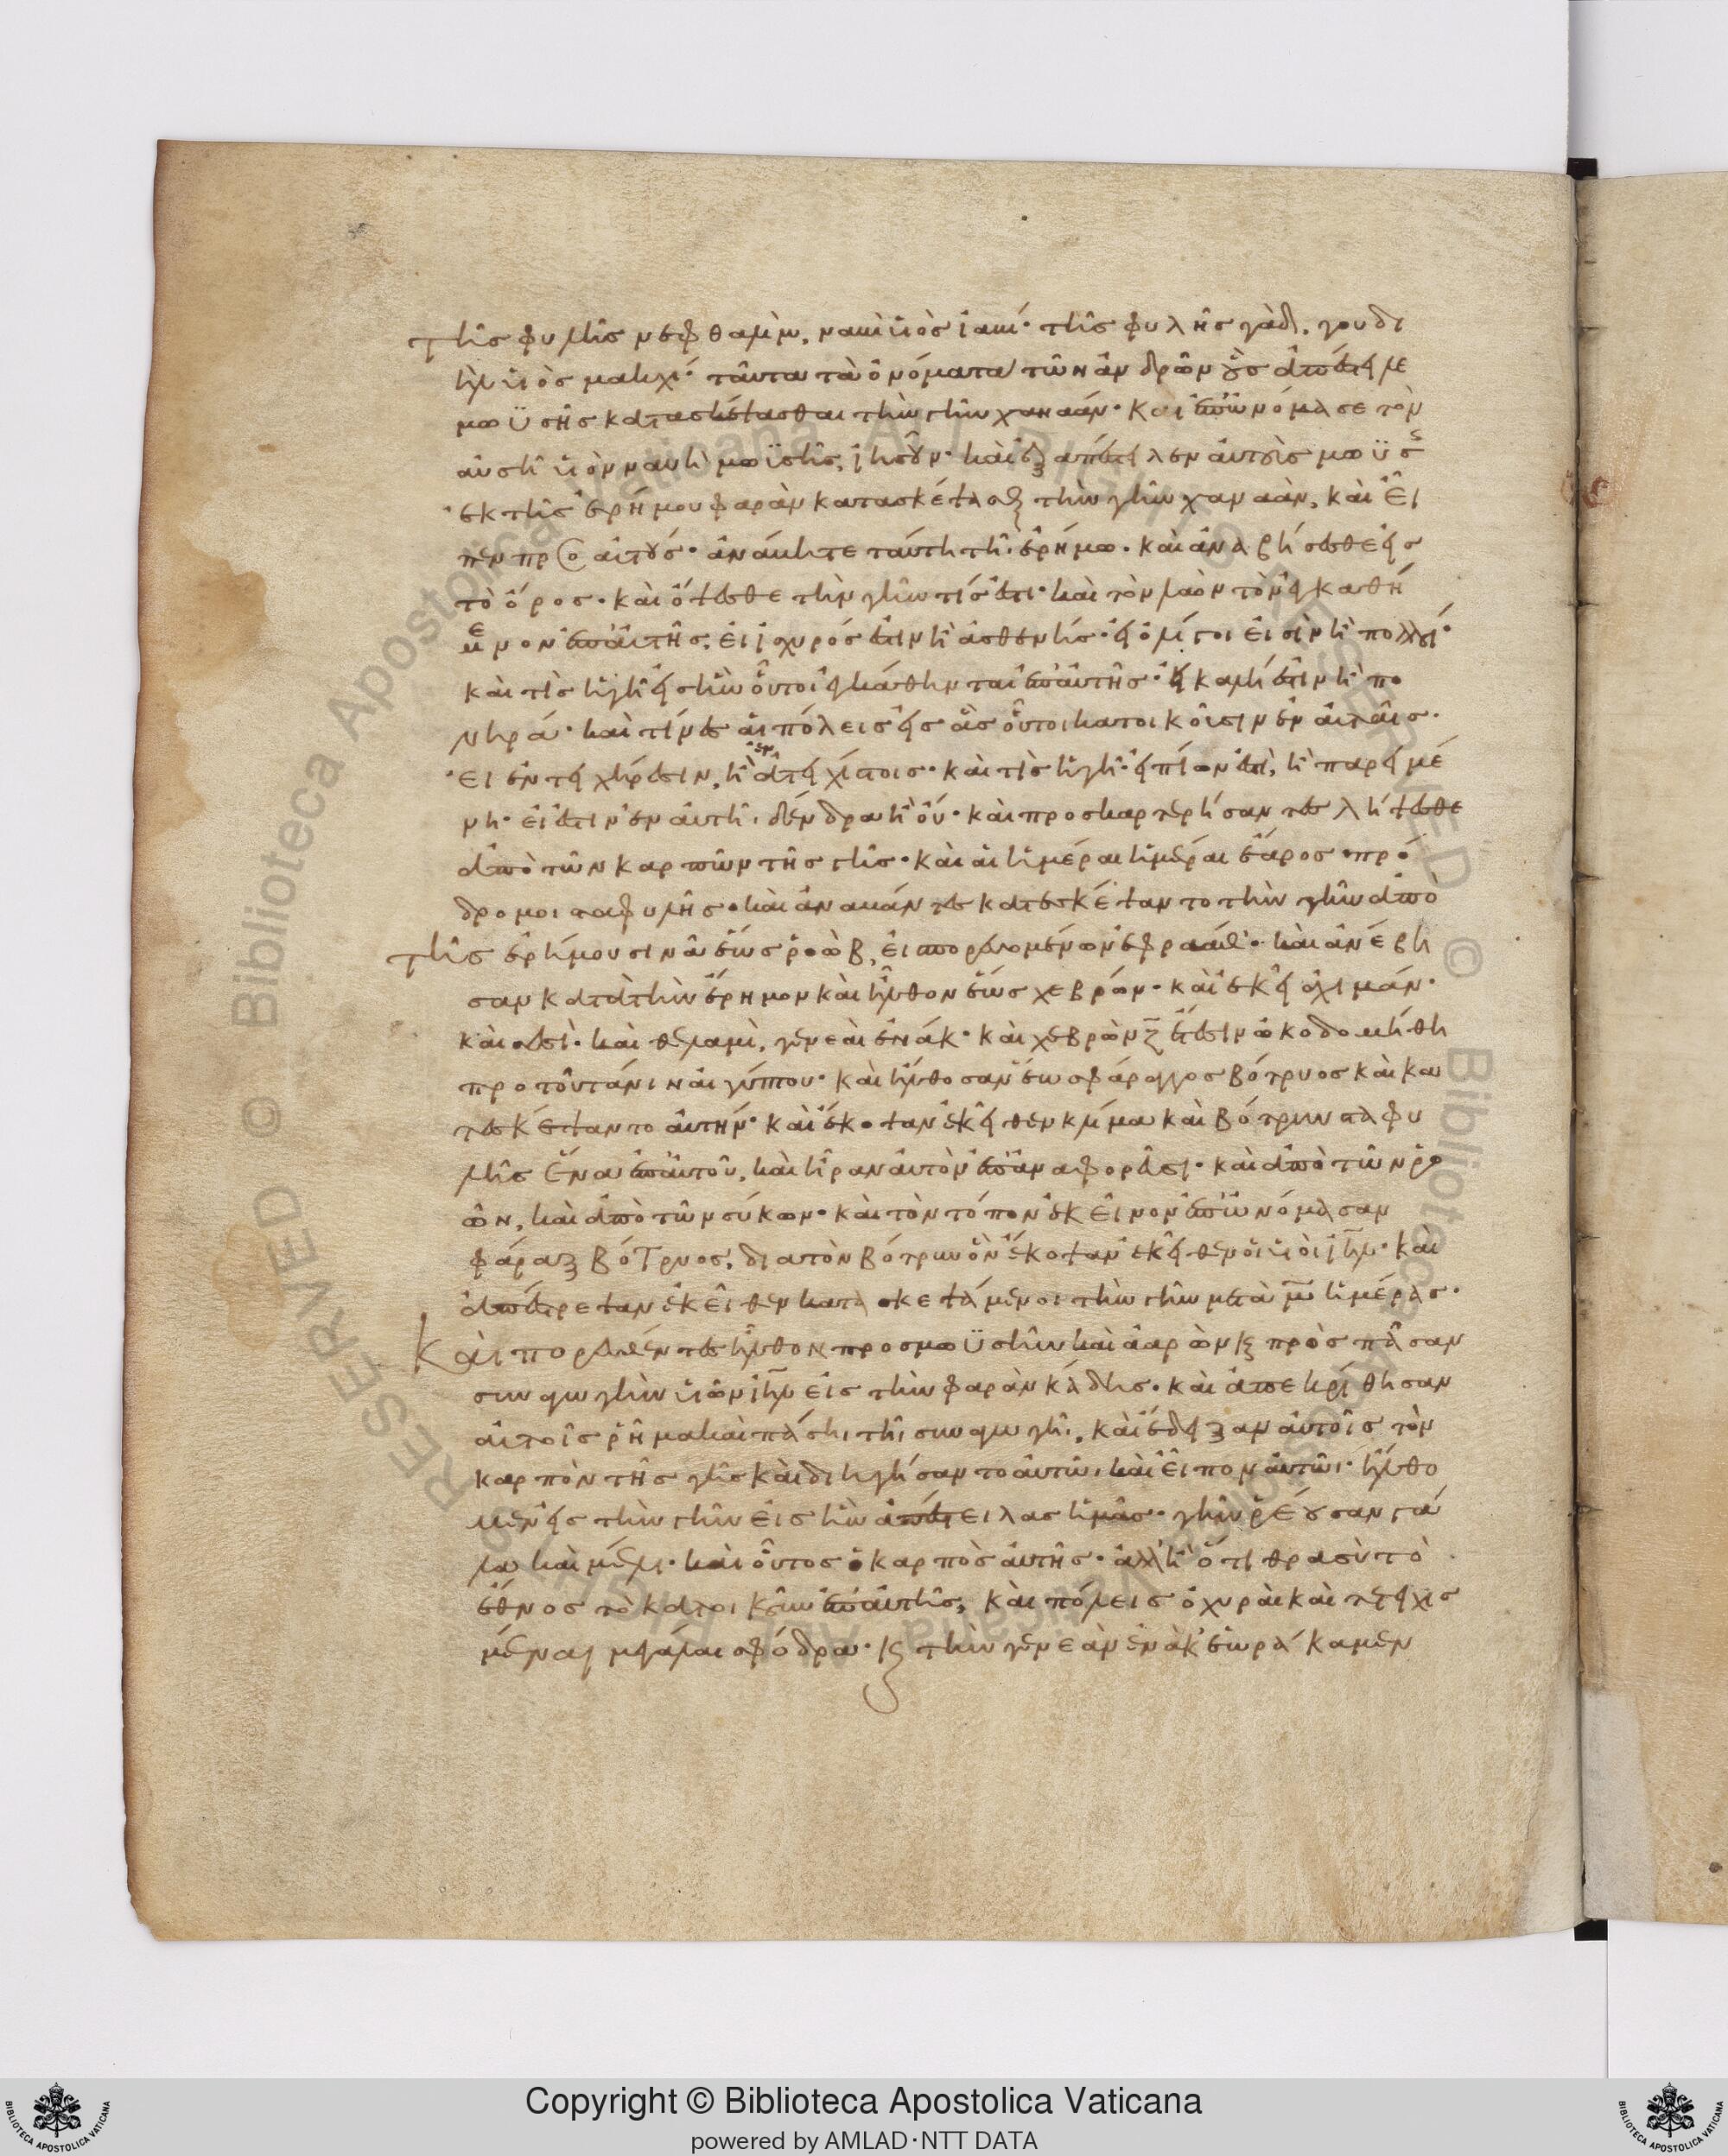 τῆς φυλῆς νεφθαλὶμ. ναπὶ υἱὸς ἰαπί· τῆς φυλῆς γὰδ. γουδι
ὴλ υἱὸς μακχί· ταῦτα τὰ ὀνόματα τῶν ἀνδρῶν οὓς ἀπέστειλε
μωϋσῆς κατασκέψασθαι τὴν γῆν χαναάν· καὶ ἐπωνόμασε τὸν
αὐσῆ υἱὸν ναυὴ μωϋσῆς, ἰησοῦν· καὶ ἐξαπέστειλεν αὐτοὺς μωϋσ
ἐκ τῆς ἐρήμου φαρὰν κατασκέψασθαι τὴν γῆν χαναὰν, καὶ εἶ
πεν πρὸς αὐτούς· ἀνάβητε ταύτῃ τῇ ἐρήμω· καὶ ἀναβήσεσθε εἰς
τὸ ὄρος· καὶ ὄψεσθε τὴν γῆν τίς ἐστι· καὶ τὸν λαὸν τὸν ἐγκαθή
μενον ἐπ' αὐτῆς. εἰ ἰσχυρός ἐστιν ἢ ἀσθενής· εἰ ὀλίγοι εἰσὶν ἢ πολλοί·
καὶ τίς ἡ γῆ εἰς ἣν οὗτοι ἐγκάθηνται ἐπ' αὐτῆς· εἰ καλή ἐστιν ἢ πο
νηρά· καὶ τίνες αἱ πόλεις εἰς ἃς οὗτοι κατοικοῦσιν ἐν αὐταῖς·
εἰ ἐν τειχήρεσιν, ἢ ἐν ἀτειχίστοις· καὶ τίς ἡ γῆ· εἰ πίων ἐστὶ, ἢ παρειμέ
νη· εἰ ἔστιν ἐν αὐτῇ δένδρα ἢ οὔ· καὶ προσκαρτερήσαντες λήψεσθε
ἀπὸ τῶν καρπῶν τῆς γῆς· καὶ αἱ ἡμέραι ἡμέραι ἔαρος πρό
δρομοι σταφυλῆς· καὶ ἀναβάντες κατεσκέψαντο τὴν γῆν ἀπὸ
τῆς ἐρήμου σινὰ ἕως ῥοὼβ, εἰσπορευομένων ἐφραάθ· καὶ ἀνέβη
σαν κατὰ τὴν ἔρημον καὶ ἦλθον ἕως χεβρών· καὶ ἐκεῖ ἀχιμάν·
καὶ σεσὶ· καὶ θελαμὶ, γενεαὶ ἐνάκ· καὶ χεβρὼν ζ ἔτεσιν ὠκοδομήθη
προ τοῦ τάνιν αἰγύπτου· καὶ ἤλθοσαν ἕως φάραγγος βότρυος καὶ κα
τεσκέψαντο αὐτήν· καὶ ἔκοψαν ἐκεῖθεν κλῆμα καὶ βότρυν σταφυ
λῆς ἕνα ἐπ' αὐτοῦ, καὶ ἦραν αὐτὸν ἐπ' ἀναφορεῦσι· καὶ ἀπὸ τῶν ῥο
ῶν, καὶ ἀπὸ τῶν σύκων· καὶ τὸν τόπον ἐκεῖνον ἐπωνόμασαν
φάραξ βότρυος, δια τὸν βότρυν ὃν ἔκοψαν ἐκεῖθεν οἱ υἱοὶ ἰηλ· καὶ
ἀπέστρεψαν ἐκεῖθεν κατασκεψάμενοι τὴν γῆν μετὰ μ ἡμέρας·
Καὶ πορευθέντες ἦλθον προς μωϋσῆν καὶ ἀαρὼν κ πρὸς πᾶσαν
συναγωγὴν υἱῶν ἰηλ εἰς τὴν φαρὰν κάδης· καὶ ἀπεκρίθησαν
αὐτοῖς ῥῆμα καὶ πάσηι τῆι συναγωγῆι, καὶ ἔδειξαν αὐτοῖς τὸν
καρπὸν τῆς γῆς καὶ διηγήσαντο αὐτῶι· καὶ εἶπον αὐτῶι· ἤλθο
μεν εἰς τὴν γῆν εἰς ἣν ἀπέστειλας ἡμᾶς· γῆν ῥέουσαν γά
λα καὶ μέλι· καὶ οὗτος ὁ καρπὸς αὐτῆς· ἀλλ' ἢ ὅτι θρασὺ τὸ
ἔθνος τὸ κατοικοῦν ἐπ' αὐτῆς, καὶ πόλεις ὀχυραὶ καὶ τετειχισ
μέναι μεγάλαι σφόδρα· κ τὴν γενεὰν ἐνὰκ ἑωράκαμεν